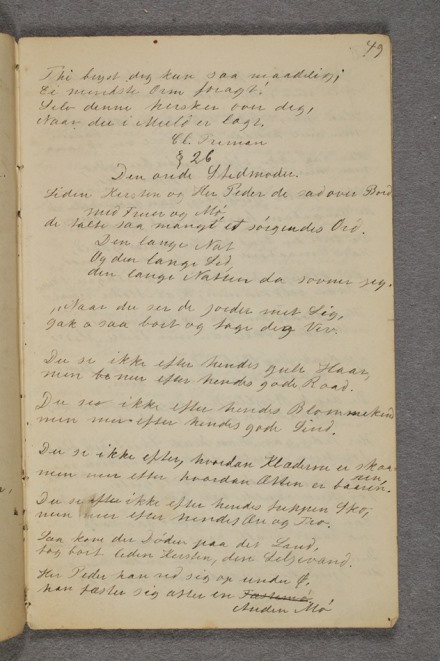 49
Thi bryst dig kun saa maadelig;
Ei mindste Orm foragt!
Selv denne hersker over dig,
Naar du i Muld er lagt.
Cl. Friman
§ 26
Den onde Stedmoder.
Liden Kirsten og Her Peder de sad over Bord
med Fruer og Mø,
de talte saa mangt et sørgendes Ord.
Den lange Nat
Og den lange Lid
den lange Natten da sovner jeg.
"Naar du ser de jorder mit Lig,
gak o saa bort og tage dig Viv.
Du se ikke efter hendes gule Haar,
men mer efter hendes gode Raad.
Du se ikke efter hendes Blommekind
men mer efter hendes gode Sind.
Du se ikke efter, hvordan Klæderne er skaa-
ren,
men mer efter hvordan Ætten er baaren.
Du se ikke efter hendes Sko,
men mer efter hendes Ære og Tro.
Saa kom der Døder paa det Land,
tog bort liden Kirsten, den Liljevand.
Her Peder han red sig op under Ø,
han fæster sig atter en Fæstemø,
Anden Mø